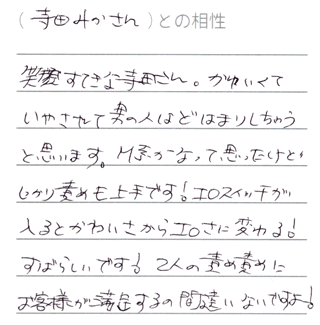 (寺田みかさん)との相性
笑顔すてきな寺田さん。かわいくて
いやされて男の人はどはまりしちゃう
と思います。M系かなって思ったけど
しっかり責めも上手です！エロスイッチが
入るとかわいさからエロさに変わる！
すばらしいです！2人の責め責めに
お客様が満足する事間違いないですよ！